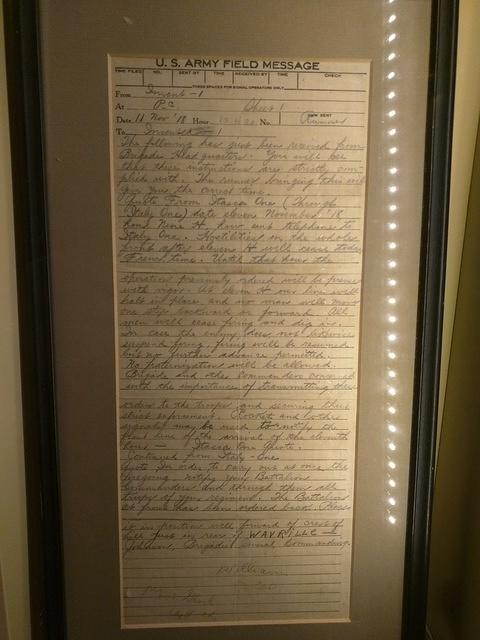 U.S. ARMY FIELD MESSAGE
TIME FILED NO. SENT BY TIME RECEIVED BY TIME CHECK
THESE SPACES FOR SIGNAL OPERATORS ONLY
From -1
At P.C. Sheet 1
Date 11 Nov '18 Hour No. HOW SENT Runner
To 1
The following has just been received from
Brigade Headquarters. You will see
that these instructions are strictly com-
plied with. The runner bringing this will
give you the correct time.
Quote From Itasca One (Through
Italy One) date eleven November '18
hour Nine H. have sent telephone to
Italy One. Hostilities on the whole
front after eleven H will cease today
French time. Until that hour the
operation previously ordered will be pressed
with vigor. At eleven H our line will
halt in place and no man will move
one step backward or forward. All
men will cease firing and dig in.
In case the enemy does not likewise
suspend firing, firing will be resumed
but no further advance permitted.
No fraternization will be allowed.
Brigade and other commanders
with the importance of transmitting these
orders to the troops and securing their
strict enforcement. Rockets and other
signals may be used to notify the
front line of the arrival of the eleventh
hour — Itasca One Quote.
Continued from Italy-One
Quote In order to carry out at once the
foregoing, notify your Battalion
Commanders and through them all
troops of your regiment. The Battalion
at front has been ordered back.
is in position well forward of crest of
hill just in rear of WAVRILLE —
Brigadier General Commanding
William